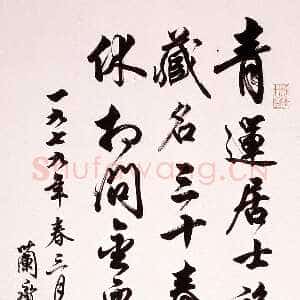 青蓮居士
藏名三十春
休相问金
一九七九年春三月
蘭
Shufawang.CN